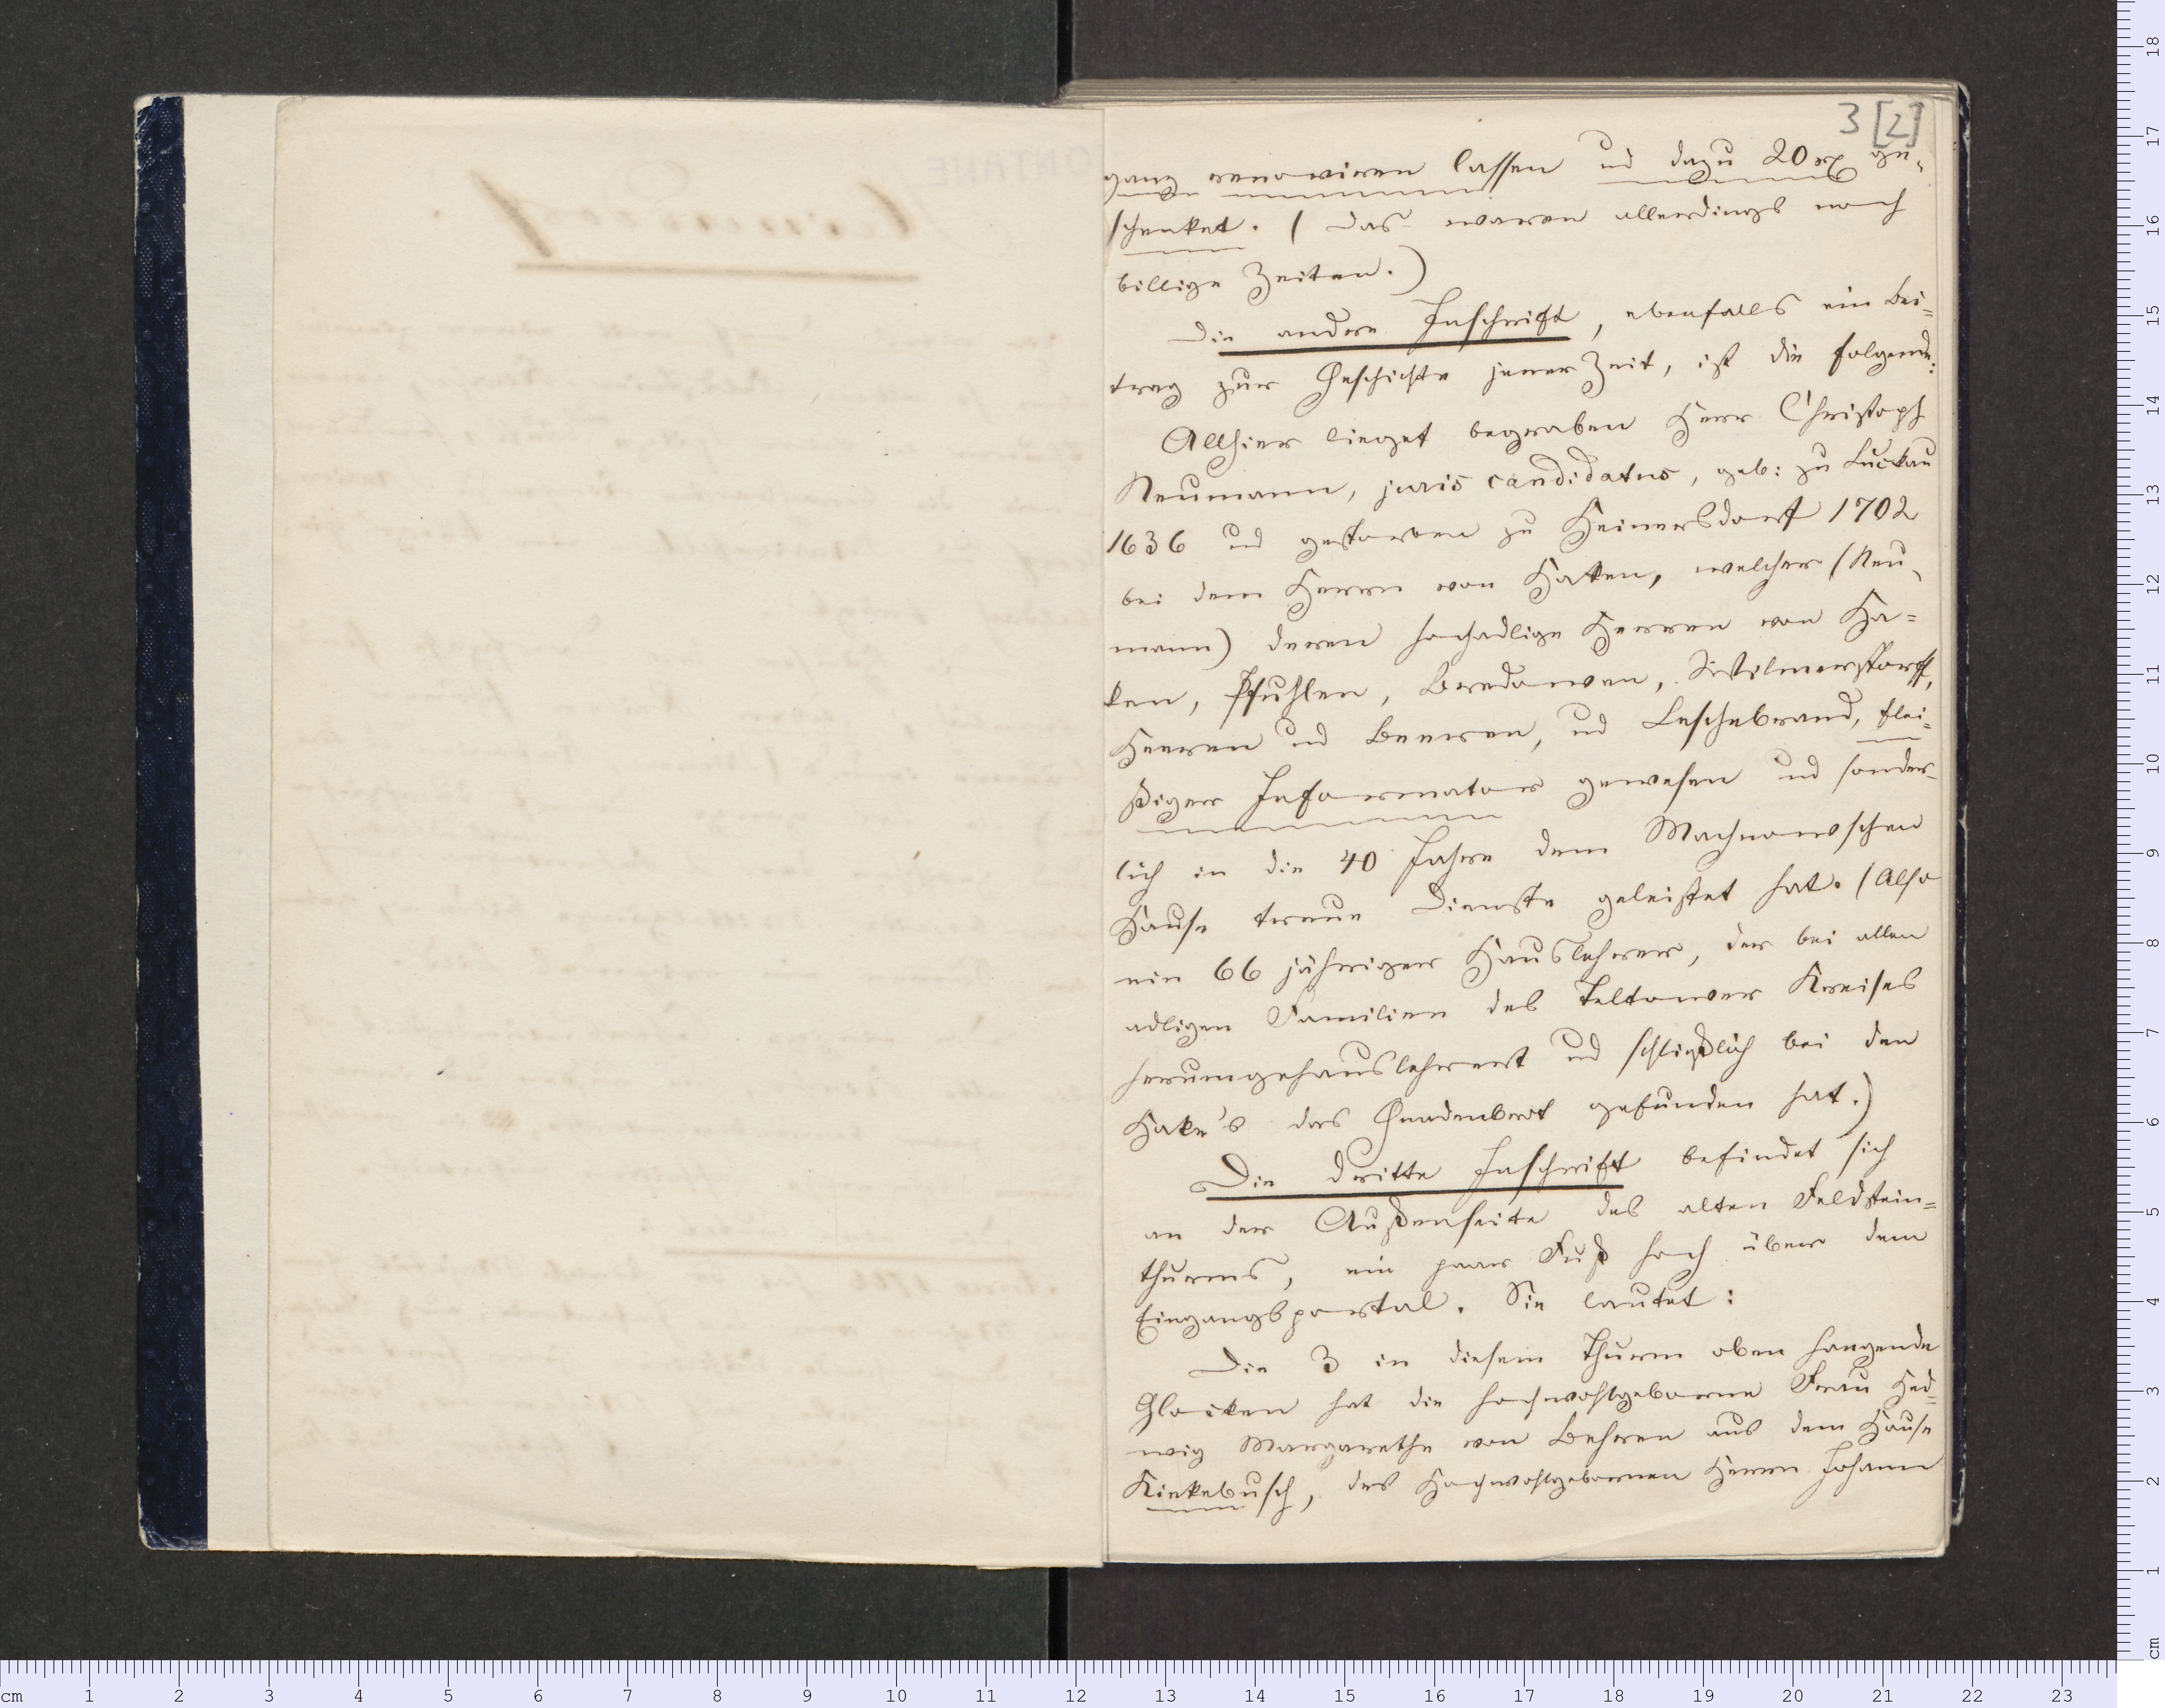 3 [2]
ganz renoviren lassen und dazu 20 rtl ge-
schenket. (Das waren allerdings noch
billige Zeiten.)
Die andre Inschrift, ebenfalls ein Bei-
trag zur Geschichte jener Zeit, ist die folgende:
Allhier lieget begraben Herr Christoph
Neumann, juris candidatus, geb: zu Luckau
1636 und gestorben zu Heinersdorf 1702
bei dem Herrn von Haken, welcher (Neu-
mann) deren hochadlige Herren von Ha=
ken, Pfuhlen, Bredowen, Wilmerstorff,
Heeren und Beeren, und Leschebrand, flei=
ßiger Informator gewesen und sonder-
lich in die 40 Jahre dem Machnowschen
Hause treue Dienste geleistet hat. (Also
ein 66 jähriger Hauslehrer, der bei allen
adligen Familien des Teltower Kreises
herumgehauslehrert und schließlich bei den
Hake's das Gnadenbrot gefunden hat.)
Die dritte Inschrift befindet sich
an der Außenseite des alten Feldstein=
thurms, ein paar Fuß hoch über dem
Eingangsportal. Sie lautet:
Die 3 in diesem Thurm oben hangende
Glocken hat die hochwohlgeborne Frau Hed=
wig Margarethe von Behren aus dem Hause
Kiekebusch, des Hochwohlgebornen Herrn Johann